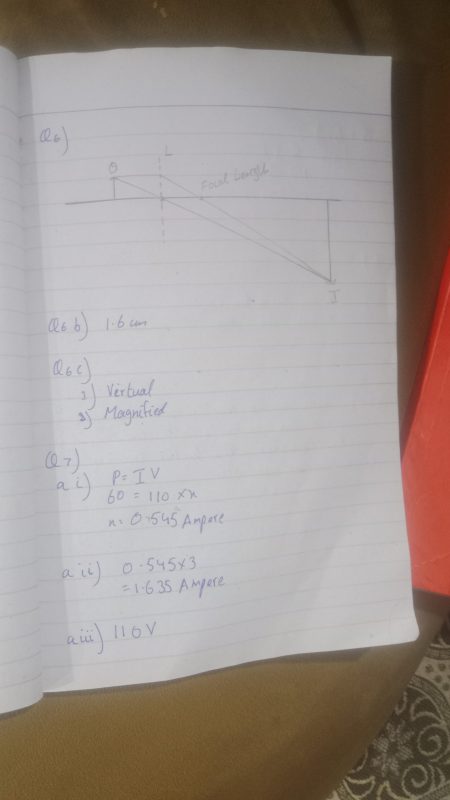 Q6)
L
O
Focal Length
I
Q6 b) 1.6 cm
Q6 c)
1) Vertual
2) Magnified
Q7)
a i) P = I V
60 = 110 × x
x = 0.545 Ampere
a ii) 0.545 × 3
= 1.635 Ampere
a iii) 110 V